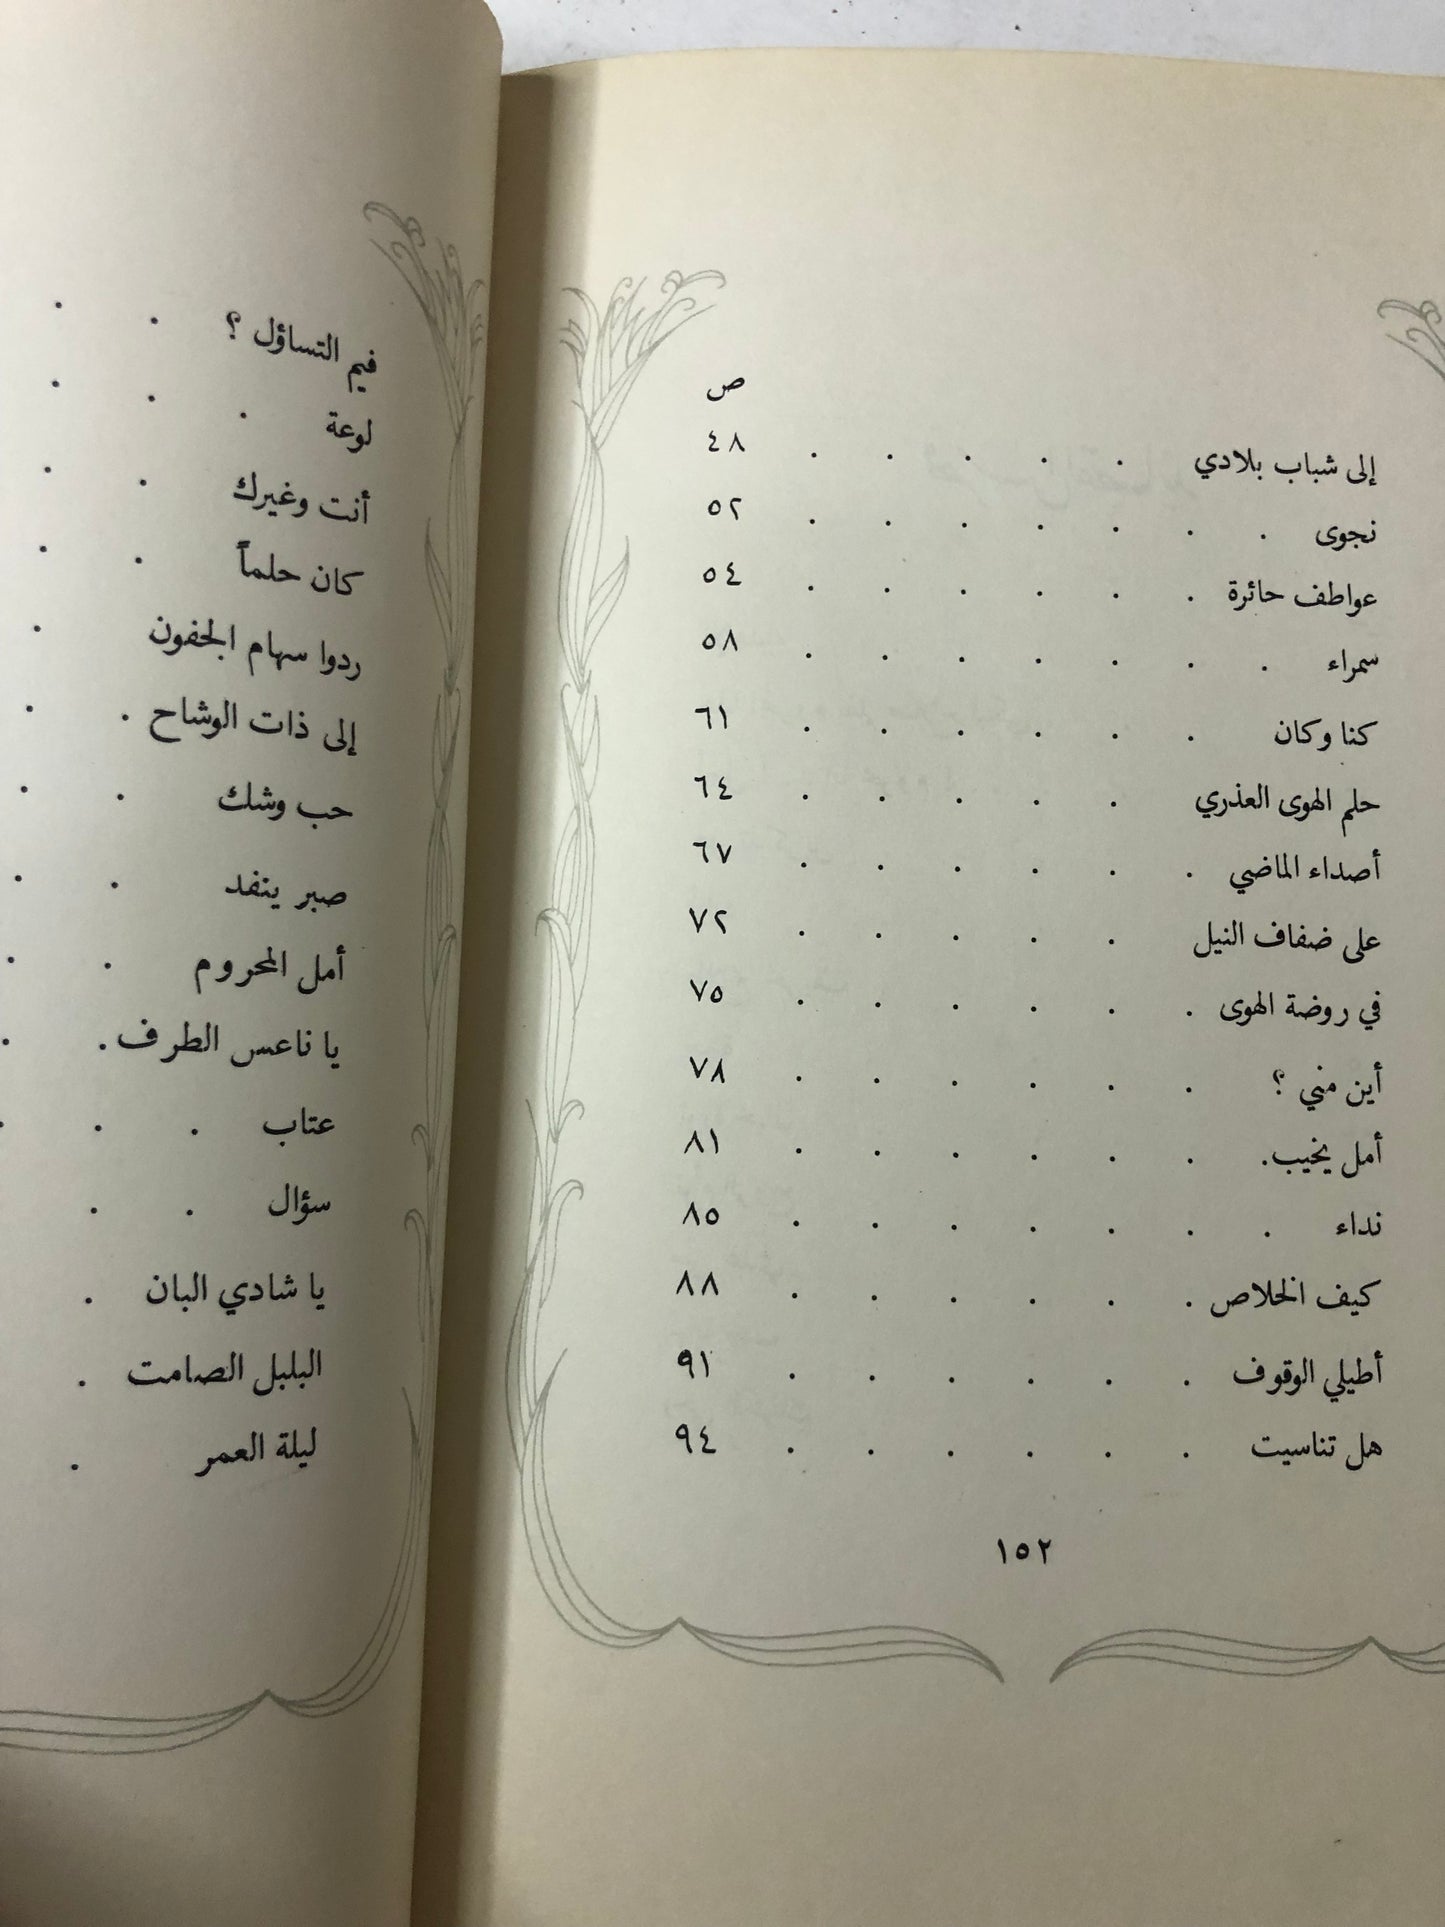 ص
إلى شباب بلادي . . . . . ٤٨
نجوى . . . . . . . ٥٢
عواطف حائرة . . . . . . ٥٤
سمراء . . . . . . . ٥٨
كنا وكان . . . . . . ٦١
حلم الهوى العذري . . . . . ٦٤
أصداء الماضي . . . . . . ٦٧
على ضفاف النيل . . . . . ٧٢
في روضة الهوى . . . . . . ٧٥
أين مني ؟ . . . . . . ٧٨
أمل يخيب . . . . . . . ٨١
نداء . . . . . . . ٨٥
كيف الخلاص . . . . . . ٨٨
أطيلي الوقوف . . . . . . ٩١
هل تناسيت . . . . . . ٩٤
١٥٢
فيم التساؤل ؟ . .
لوعة . . .
أنت وغيرك . .
كان حلماً . .
ردوا سهام الجفون .
إلى ذات الوشاح . .
حب وشك . .
صبر ينفد . .
أمل المحروم . .
يا ناعس الطرف . .
عتاب . . .
سؤال . .
يا شادي البان .
البلبل الصامت .
ليلة العمر .